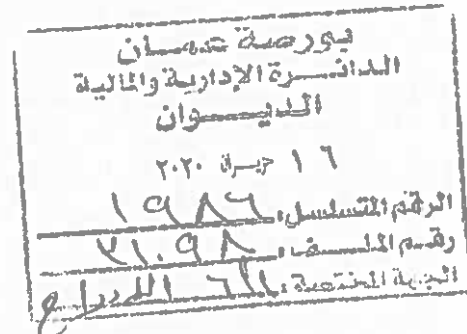 بورصة عمان
الدائرة الإدارية والمالية
الديوان
١٦ حزيران ٢٠٢٠
الرقم المتسلسل: ١٩٨٦
رقم الملف:
الجهة المختصة: